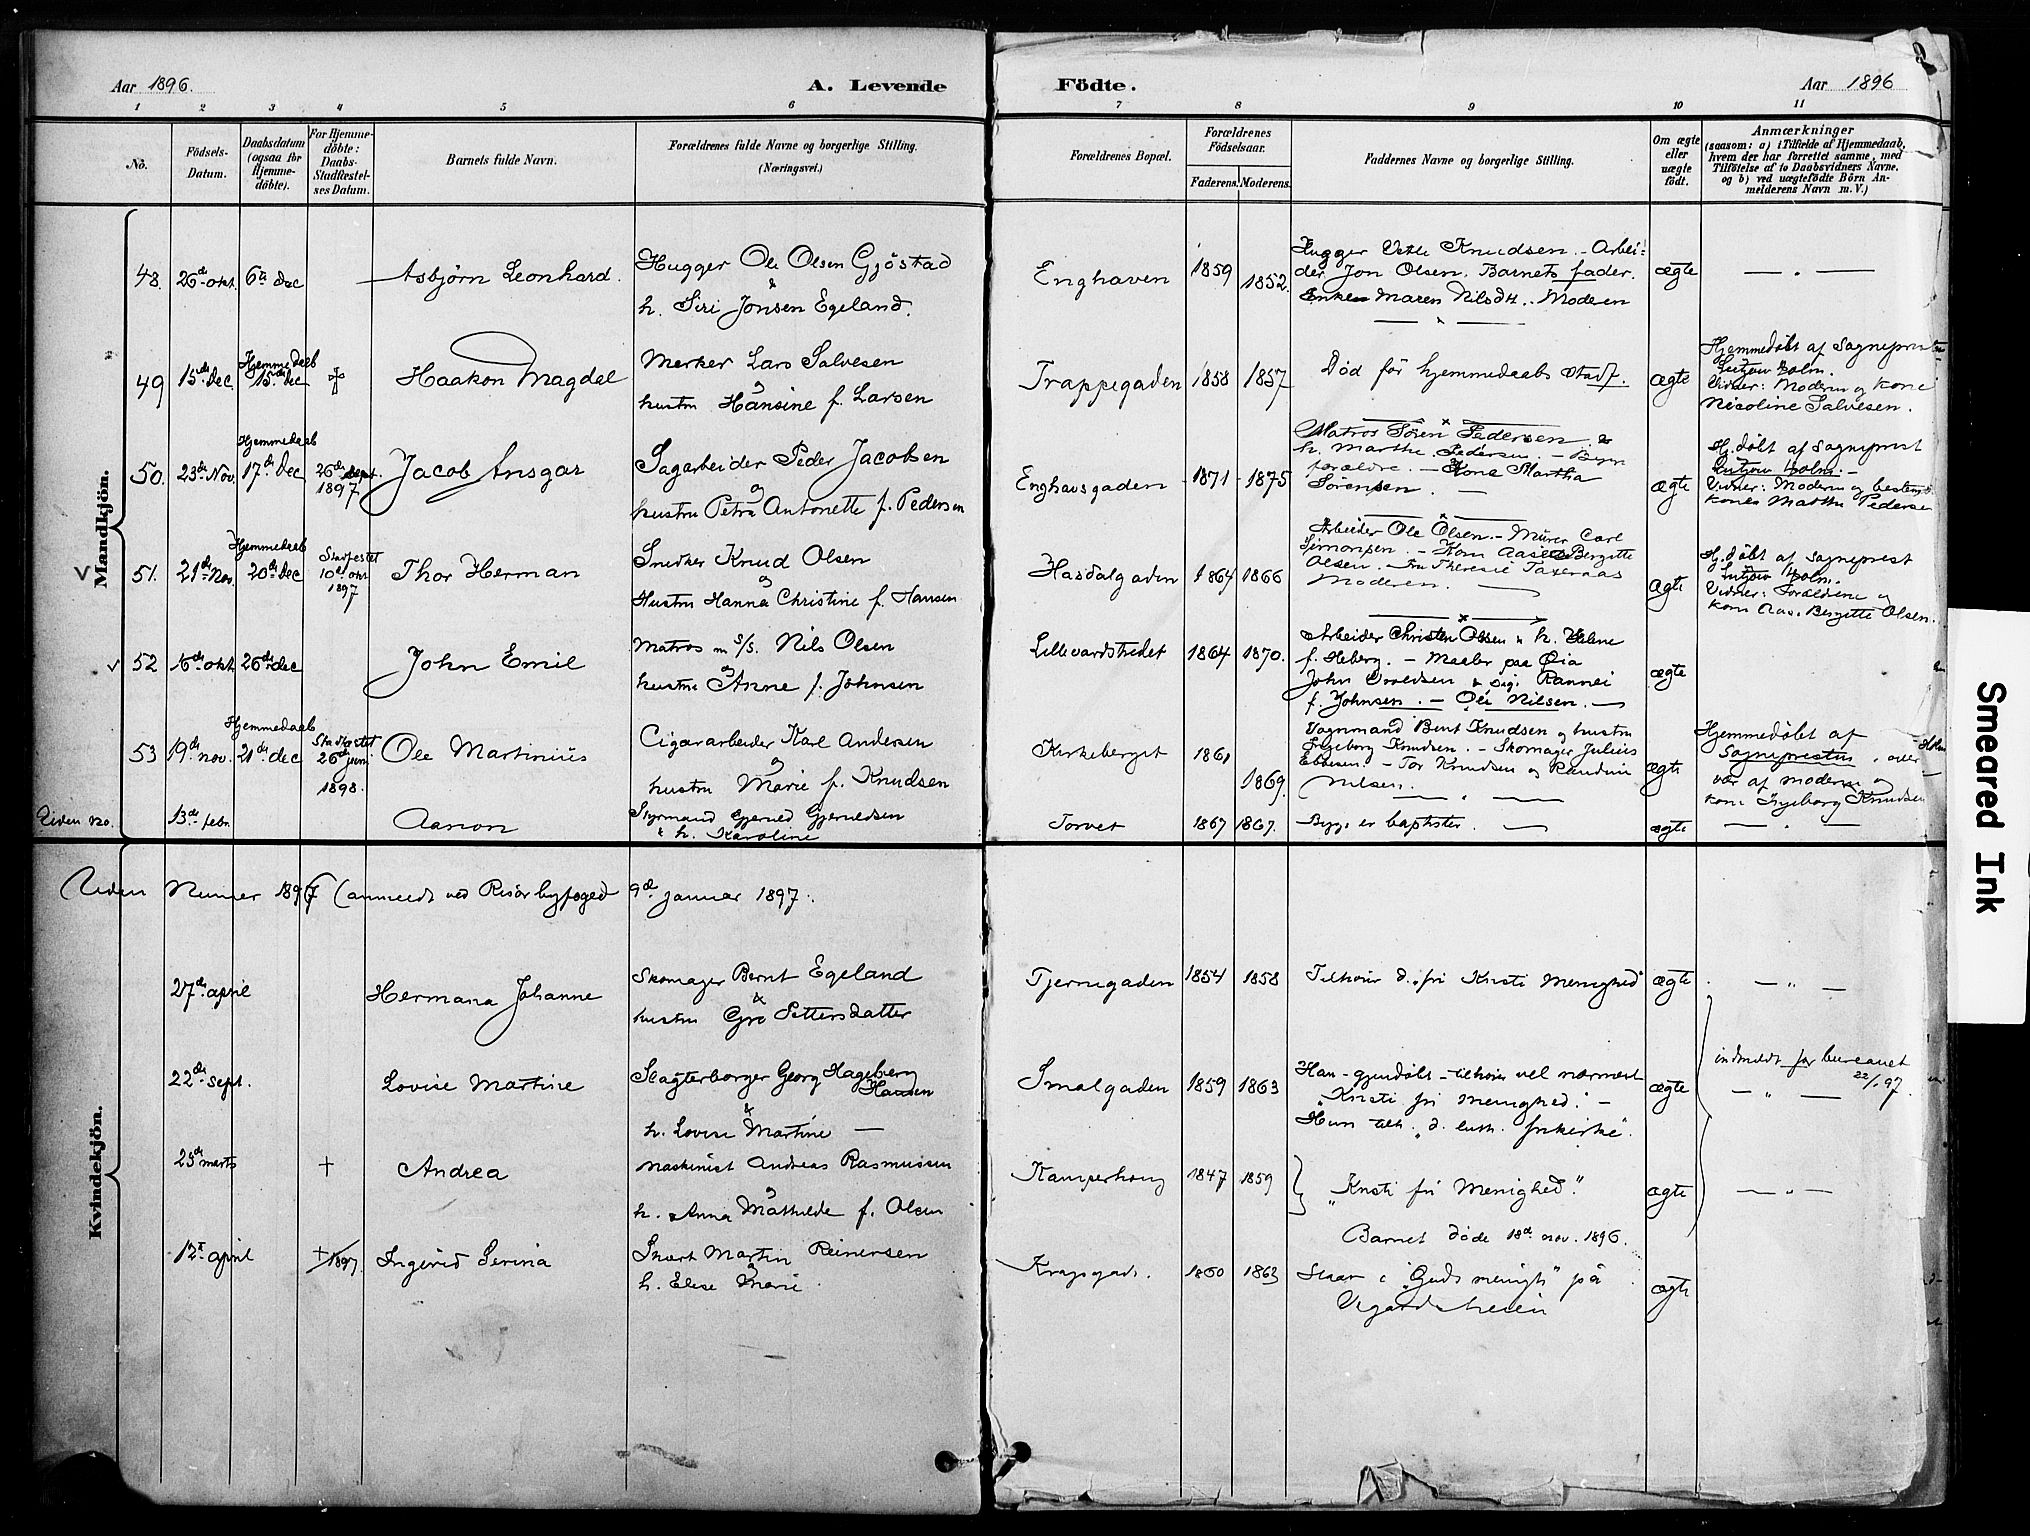 Aar 1896.
A. Levende
Födte.
Aar 1896
1 2 3 4 5 6 7 8 9 10 11
No.
Födsels-
Datum.
Daabsdatum
(ogsaa for
Hjemme-
döbte).
For Hjemme-
döbte:
Daabs-
Stadfæstel-
ses Datum.
Barnets fulde Navn.
Forældrenes fulde Navne og borgerlige Stilling.
(Næringsvei.)
Forældrenes Bopæl.
Forældrenes
Födselsaar.
Faderens. Moderens.
Faddernes Navne og borgerlige Stilling.
Om ægte
eller
uægte
födt.
Anmærkninger
(saasom: a) i Tilfælde af Hjemmedaab,
hvem der har forrettet samme, med
Tilföielse af to Daabsvidners Navne,
og b) ved uægtefödte Börn An-
melderens Navn m. V.)
Mandkjön.
48. 26de okt. 6te dec Asbjörn Leonhard.
Hugger Ole Olsen Gjöstad
&
h. Siri Jonsen Egeland.
Enghaven 1859 1852.
Hugger Vetle Knudsen - Arbei-
der Jon Olsen. Barnets fader.
Enken Maren Nilsdtr. - Moderen
ægte
49 15de dec. Hjemmedaab 15de dec † Haakon Magdal
Merker Lars Salvesen
og
hustru Hansine f. Larsen
Trappegaden 1858 1857
Död før hjemmedaabs stadf.
ægte
Hjemmedöbt af Sogneprest
Lutzow Holm.
Vidner: Moderen og Kone
Nicoline Salvesen.
50. 23de Nov. Hjemmedaab 17de Dec 26de sept. 1897 Jacob Ansgar
Sagarbeider Peder Jacobsen
og
hustru Petra Antonette f. Pedersen
Enghavsgaden 1871 1875
Matros Sören Pedersen &
h. Marthe Pedersen. - Begge
forældre. - Kone Martha
Sörensen.
ægte
Hj. döbt af Sogneprest
Lutzow Holm. -
Vidner: Moderen og bestem
kones Marthe Pedersen
51. 21de Nov. Hjemmedaab 20de Dec Stadfestet 10de okt 1897 Thor Herman
Snedker Knud Olsen
og
Hustru Hanna Christine f. Hansen
Hasdalgaden 1864 1866
Arbeider Ole Olsen. - Murer Carl
Simonsen. - Kone Aase Bergitte
Olsen. -
Moderen.
ægte
Hj. döbt af Sogneprest
Lutzow Holm.
Vidner: Forældrene og
kone Aas. Bergitte Olsen.
52 16de okt 26de dec John Emil
Matros m S/S. Nils Olsen
og
hustru Anne f. Johnsen
Lillevardstrædet 1864 1870.
Arbeider Christen Olsen & h. Helene
f. Heberg. - Maaler paa Øia
John &
f. Johnsen. - Ole Nilsen.
ægte
53 19de nov. Hjemmedaab 21de dec Stadfæstet 26de juni 1898. Ole Martinius
Cigararbeider Karl Andersen
og
hustru Marie f. Knudsen
Kirkeberget 1861 1869.
Vognmand Bent Knudsen og hustru
Ingeborg Knudsen. - Skomager Julius
Ebbesen. - Tor Knudsen og
Nilsen.
ægte
Hjemmedöbt af
Sognepresten, over
vær af moderen og
kone Ingeborg Knudsen
Uden no. 13de febr. Aanon
Styrmand Gjerulf Gjeruldsen
& h. Karoline
Torvet 1867 1867.
Begge er baptister.
ægte
Uden Numer 1896 (anmeldt ved Risör byfoged 9de januar 1897.
Kvindekjön.
27de april Hermana Johanne
Skomager Bernt Egeland
&
hustru Gro Settersdatter
Tjernegaden 1854 1858
Tilhörer d. fri Kristi Menighed
ægte
22de sept. Lovise Martine
Slagterborger Georg Hageberg
Hansen
&
h. Lovise Martine -
Smalgaden 1859 1863
Han - gjendöbt - tilhörer vel nærmest
"Kristi fri menighed." -
Hun tilh. "d. luth. frikirke".
ægte
indmeldt for bureauet
22/1 97.
25de marts † Andrea
Maskinist Andreas Rasmussen
og
h. Anna Mathilde f. Olsen
Kamperhaug 1847 1859
"Kristi fri Menighed."
Barnet döde 18de nov. 1896.
ægte
12te april † 1897. Ingerid Serina
Martin Reinersen
&
h. Elise Marie.
Kragsgade. 1860 1863
Staar i "Guds menigh" på
Vegardsheien
ægte
Smeared Ink